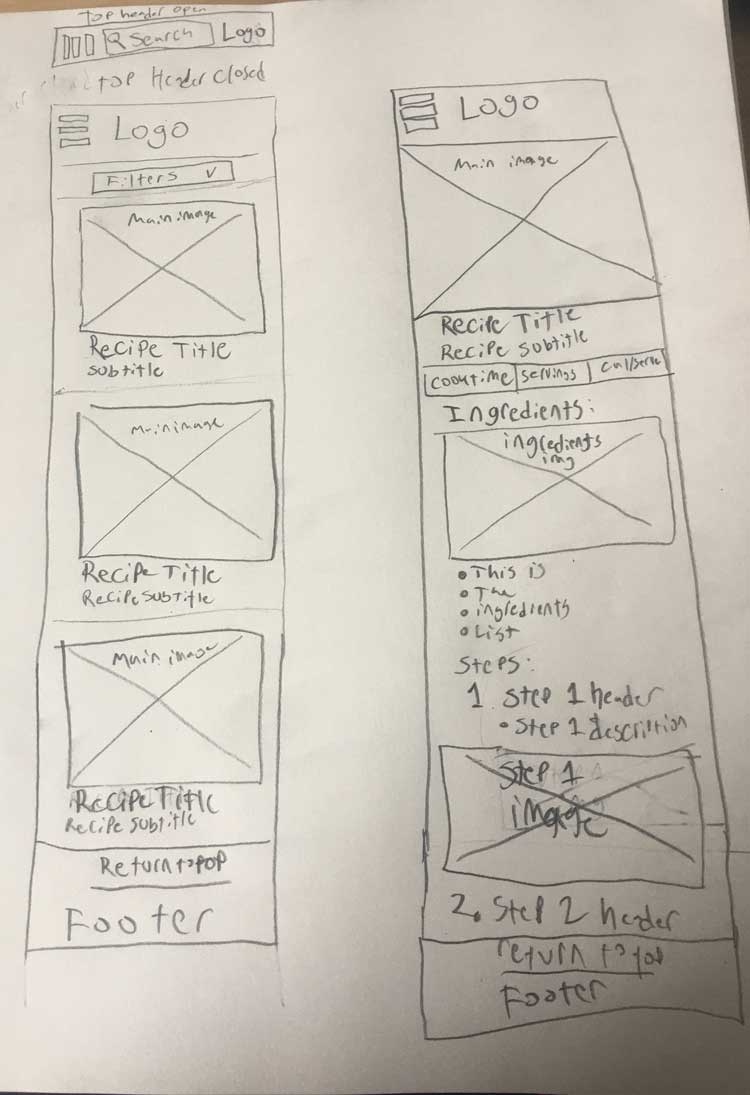 Top header open
Search Logo
Top Header closed
Logo
Filters
Main image
Recipe Title
subtitle
Main image
Recipe Title
Recipe subtitle
Main image
Recipe Title
Recipe subtitle
Return to pop
Footer
Logo
Main image
Recipe Title
Recipe subtitle
cooktime servings cal/serve
Ingredients:
ingredients
img
• This is
• The
• ingredients
• List
Steps:
1. Step 1 header
• Step 1 description
Step 1
image
2. Step 2 header
return to top
Footer